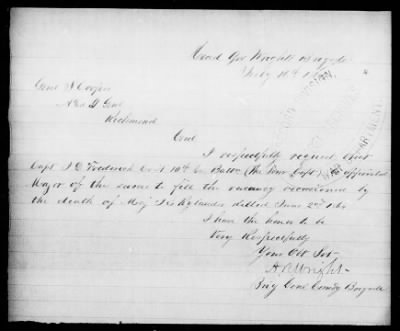 Head Qrs Wrights Brigade
July
Genl S Cooper
A & I Genl
Richmond
Genl
I respectfully request that
Capt J D Frederick Co A 10th Ga Battn be appointed
Major of the same to fill the vacancy occasioned by
the death of Maj Jno Rylander killed June 2nd 1864
I have the honor to be
Very Respectfully
Your Obt Svt
A R Wright
Brig Genl Comdg Brigade